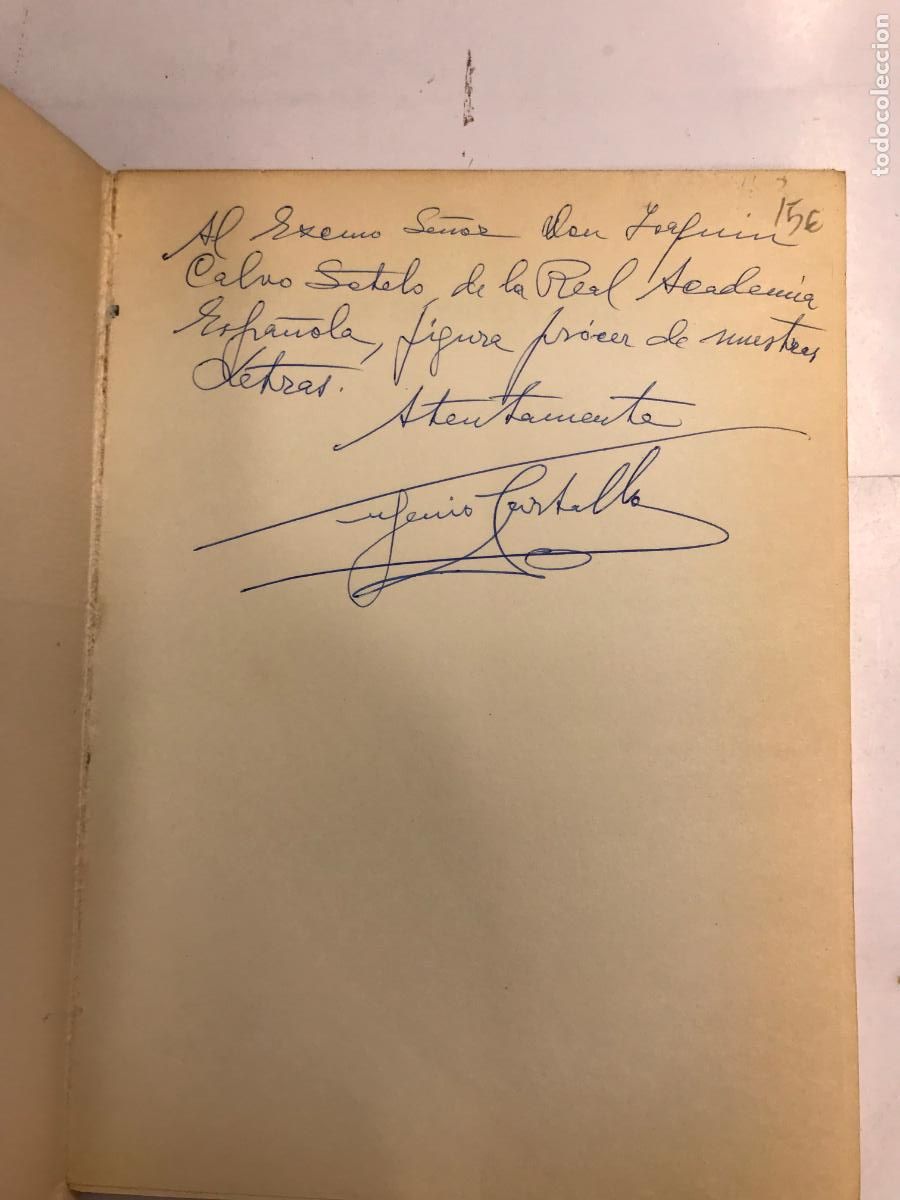 todocoleccion
15€
Al Excmo Señor Don Joaquin
Calvo Sotelo, de la Real Academia
Española, figura prócer de nuestras
Letras.
Atentamente
Eugenio